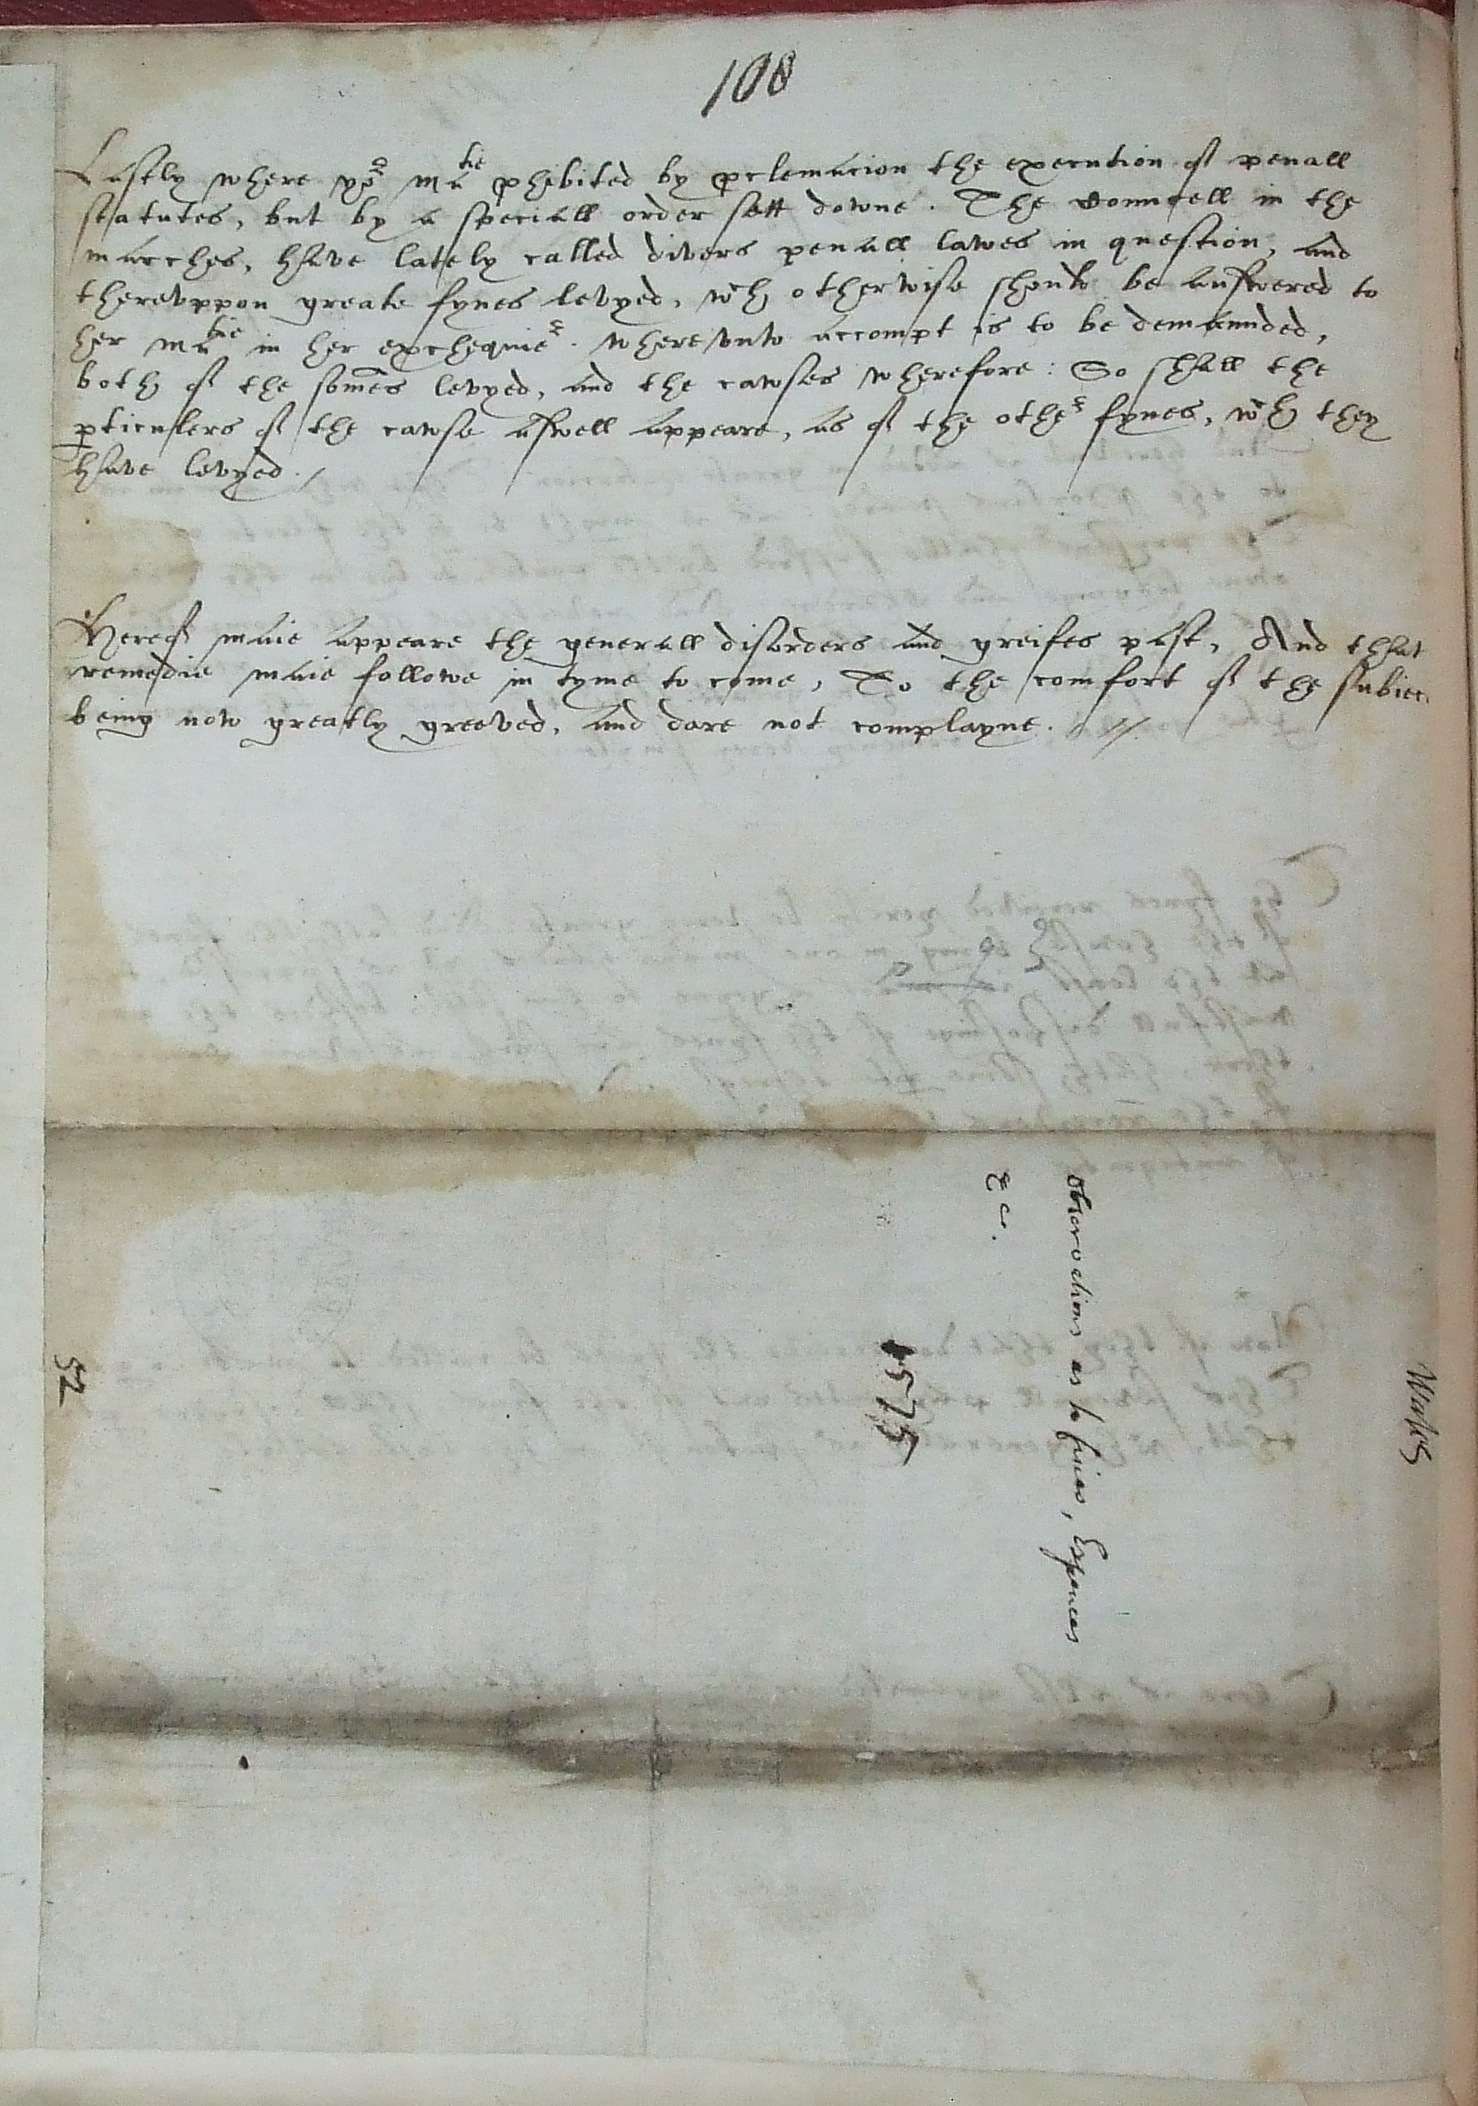 108
Lastly where yor Matie phibited by pclemacion the execution of penall
statutes, but by a speciall order sett downe. The Councell in the
marches, have lately called divers penall lawes in question, and
therevppon greate fynes levyed, wch otherwise should be answered to
her Matie in her exchequier. wherevnto accompt is to be demaunded,
both of the somes levyed, and the cawses wherefore: So shall the
pticulers of the cawse aswell appeare, as of the other fynes, wch they
have levyed./
Hereof maie appeare the generall disorders and greifes past, And that
remedie maie followe in tyme to come, To the comfort of the subiec
being now greatly greeved, and dare not complayne. //.
Wales
observations as to fines, Expences
&c.
1575
52